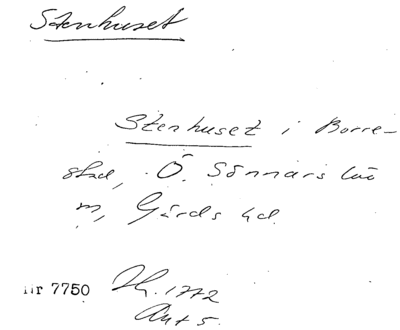 Stenhuset
Stenhuset i Borre-
stad, Ö. Sönnarslöv
n, Gärds hd.
nr 7750 H. 1772
Ant 5.